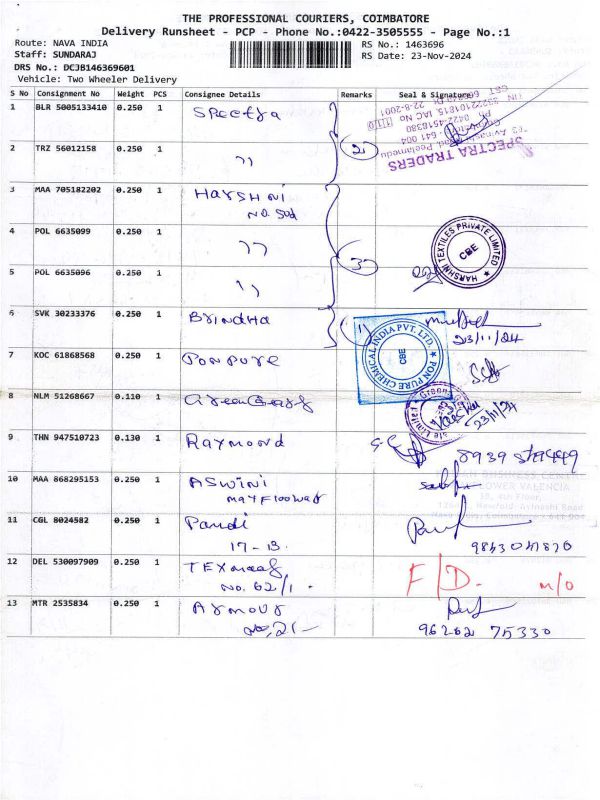 THE PROFESSIONAL COURIERS, COIMBATORE
Delivery Runsheet - PCP - Phone No.:0422-3505555 - Page No.:1
Route: NAVA INDIA
RS No.: 1463696
Staff: SUNDARAJ
RS Date: 23-Nov-2024
DRS No.: DCJB146369601
Vehicle: Two Wheeler Delivery
S No Consignment No Weight PCS Consignee Details Remarks Seal & Signature
1 BLR 5005133410 0.250 1 Spectra
SPECTRA TRADERS
2 TRZ 56012158 0.250 1 ״
2
3 MAA 705182202 0.250 1 Harshni
No. 502
4 POL 6635099 0.250 1 ״
HARSHNI TEXTILES PRIVATE LIMITED
CBE
3
5 POL 6635096 0.250 1 ״
6 SVK 30233376 0.250 1 Brindha
1
23/11/24
7 KOC 61868568 0.250 1 PONPURE
PON PURE CHEMICAL INDIA PVT. LTD.
CBE
8 NLM 51268667 0.110 1
23/11/24
9 THN 947510723 0.130 1 Raymond
10 MAA 868295153 0.250 1 ASWINI
11 CGL 8024582 0.250 1 Pandi
17-13
12 DEL 530097909 0.250 1
No. 62/1
F/D. m/o
13 MTR 2535834 0.250 1 Armour
No, 21-
96262 75330